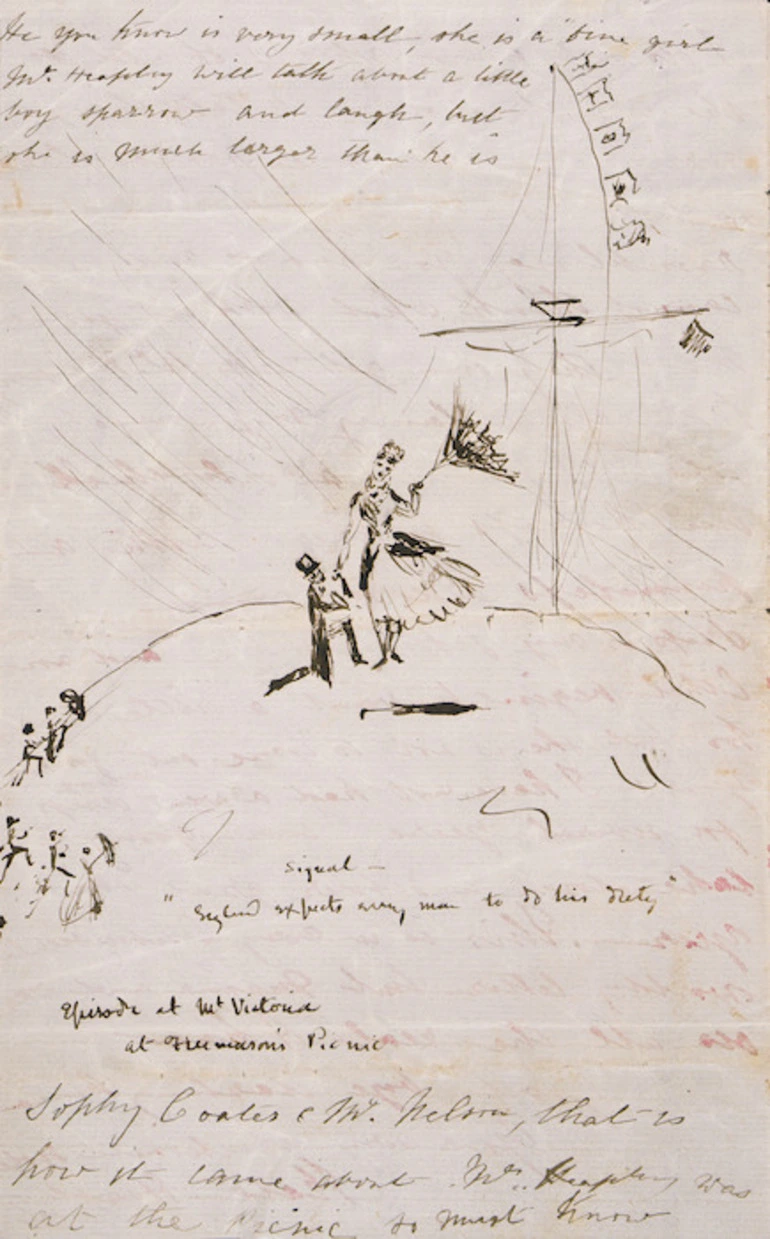 He you know is very small, she is a fine girl
Mr. Heaphy will talk about a little
boy sparrow and laugh, but
she is much larger than he is
Signal —
"England expects every man to do his duty"
Episode at Mt Victoria
at Freemason's Picnic
Sophy Coates & Mr. Nelson, that is
how it came about. Mrs. Heaphy was
at the Picnic so must know